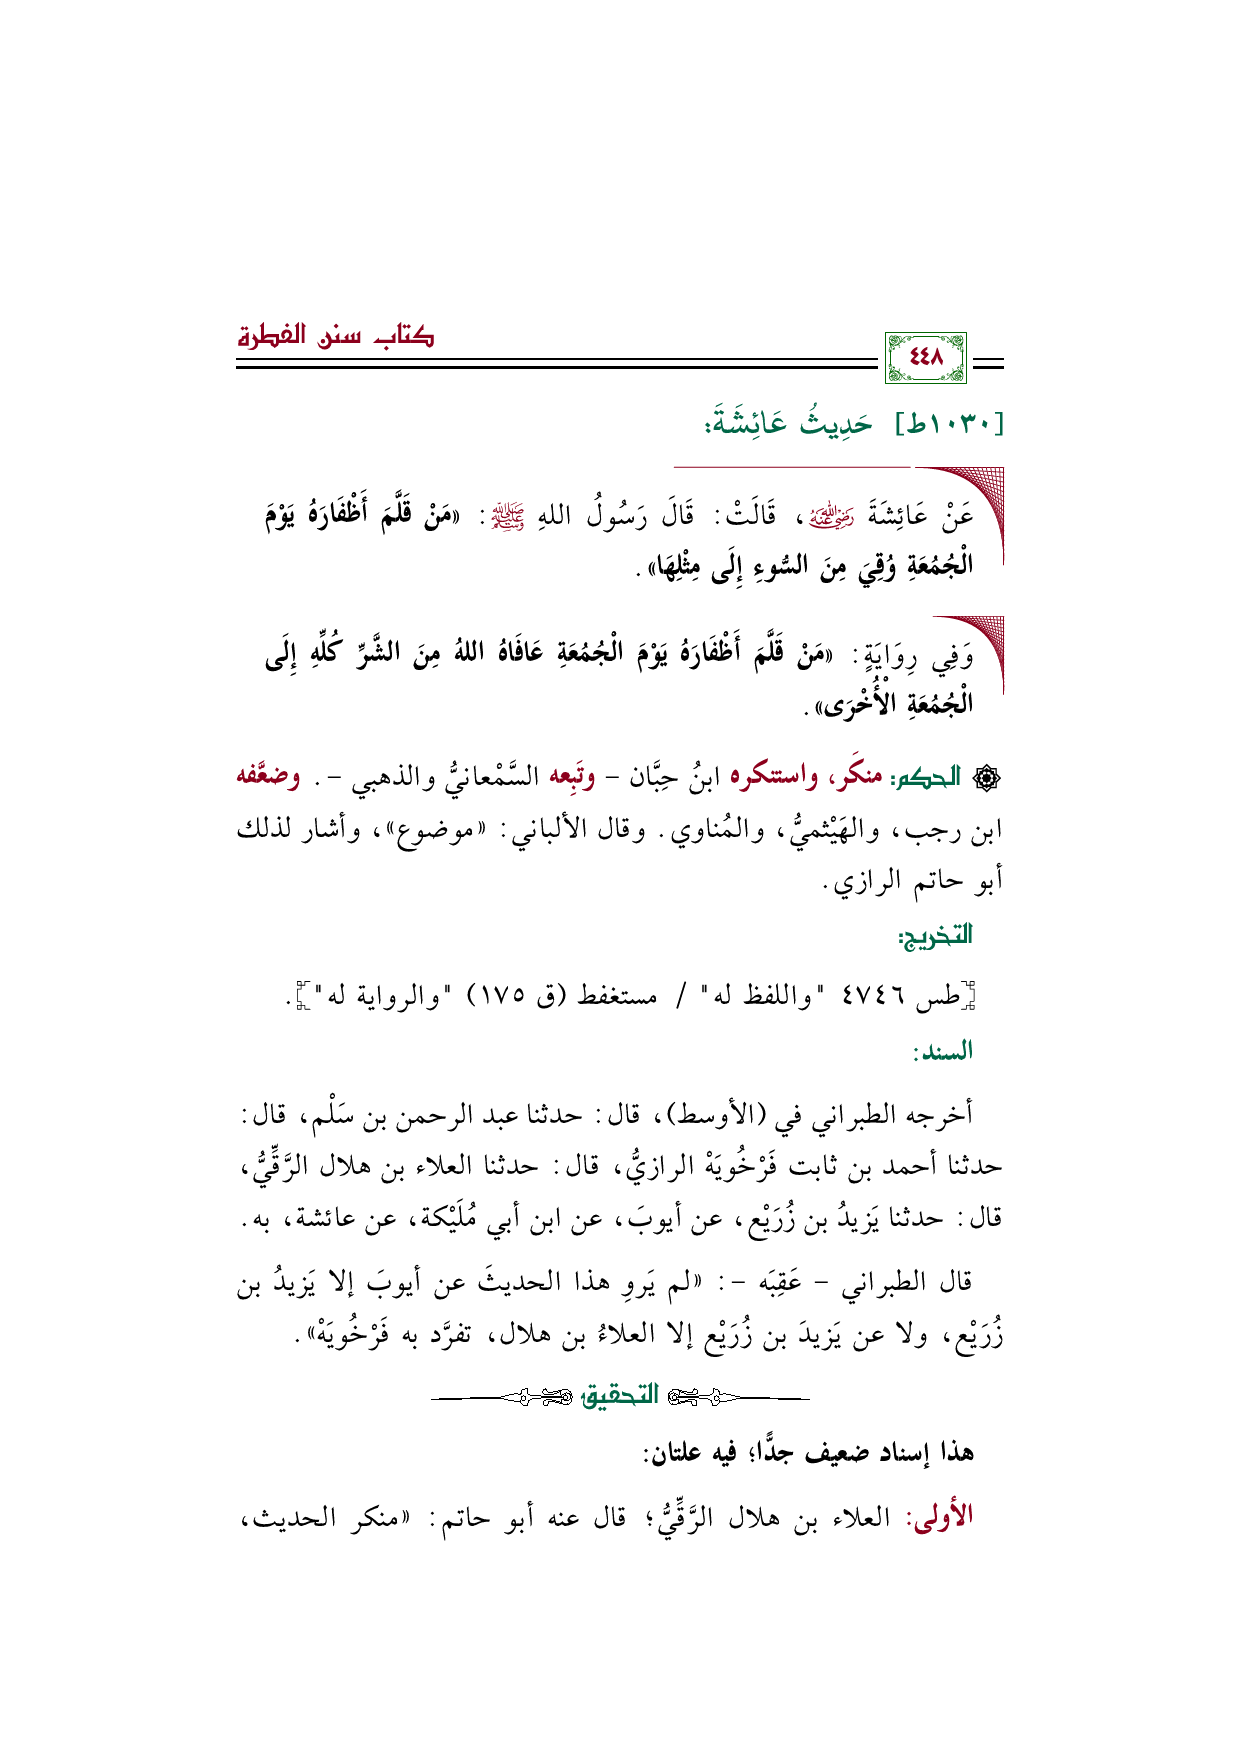 كتاب سنن الفطرة
٤٤٨
[١٠٣٠ط] حَدِيثُ عَائِشَةَ:
عَنْ عَائِشَةَ رضي الله عنها، قَالَتْ: قَالَ رَسُولُ اللهِ ﷺ: «مَنْ قَلَّمَ أَظْفَارَهُ يَوْمَ
الْجُمُعَةِ وُقِيَ مِنَ السُّوءِ إِلَى مِثْلِهَا».
وَفِي رِوَايَةٍ: «مَنْ قَلَّمَ أَظْفَارَهُ يَوْمَ الْجُمُعَةِ عَافَاهُ اللهُ مِنَ الشَّرِّ كُلِّهِ إِلَى
الْجُمُعَةِ الْأُخْرَى».
الحكم: منكَر، واستنكره ابنُ حِبَّان – وتَبِعه السَّمْعانيُّ والذهبي –. وضعَّفه
ابن رجب، والهَيْثميُّ، والمُناوي. وقال الألباني: «موضوع»، وأشار لذلك
أبو حاتم الرازي.
التخريج:
[طس ٤٧٤٦ "واللفظ له" / مستغفط (ق ١٧٥) "والرواية له"].
السند:
أخرجه الطبراني في (الأوسط)، قال: حدثنا عبد الرحمن بن سَلْم، قال:
حدثنا أحمد بن ثابت فَرْخُويَهْ الرازيُّ، قال: حدثنا العلاء بن هلال الرَّقِّيُّ،
قال: حدثنا يَزيدُ بن زُرَيْع، عن أيوبَ، عن ابن أبي مُلَيْكة، عن عائشة، به.
قال الطبراني – عَقِبَه –: «لم يَروِ هذا الحديثَ عن أيوبَ إلا يَزيدُ بن
زُرَيْع، ولا عن يَزيدَ بن زُرَيْع إلا العلاءُ بن هلال، تفرَّد به فَرْخُويَهْ».
التحقيق
هذا إسناد ضعيف جدًّا؛ فيه علتان:
الأولى: العلاء بن هلال الرَّقِّيُّ؛ قال عنه أبو حاتم: «منكر الحديث،